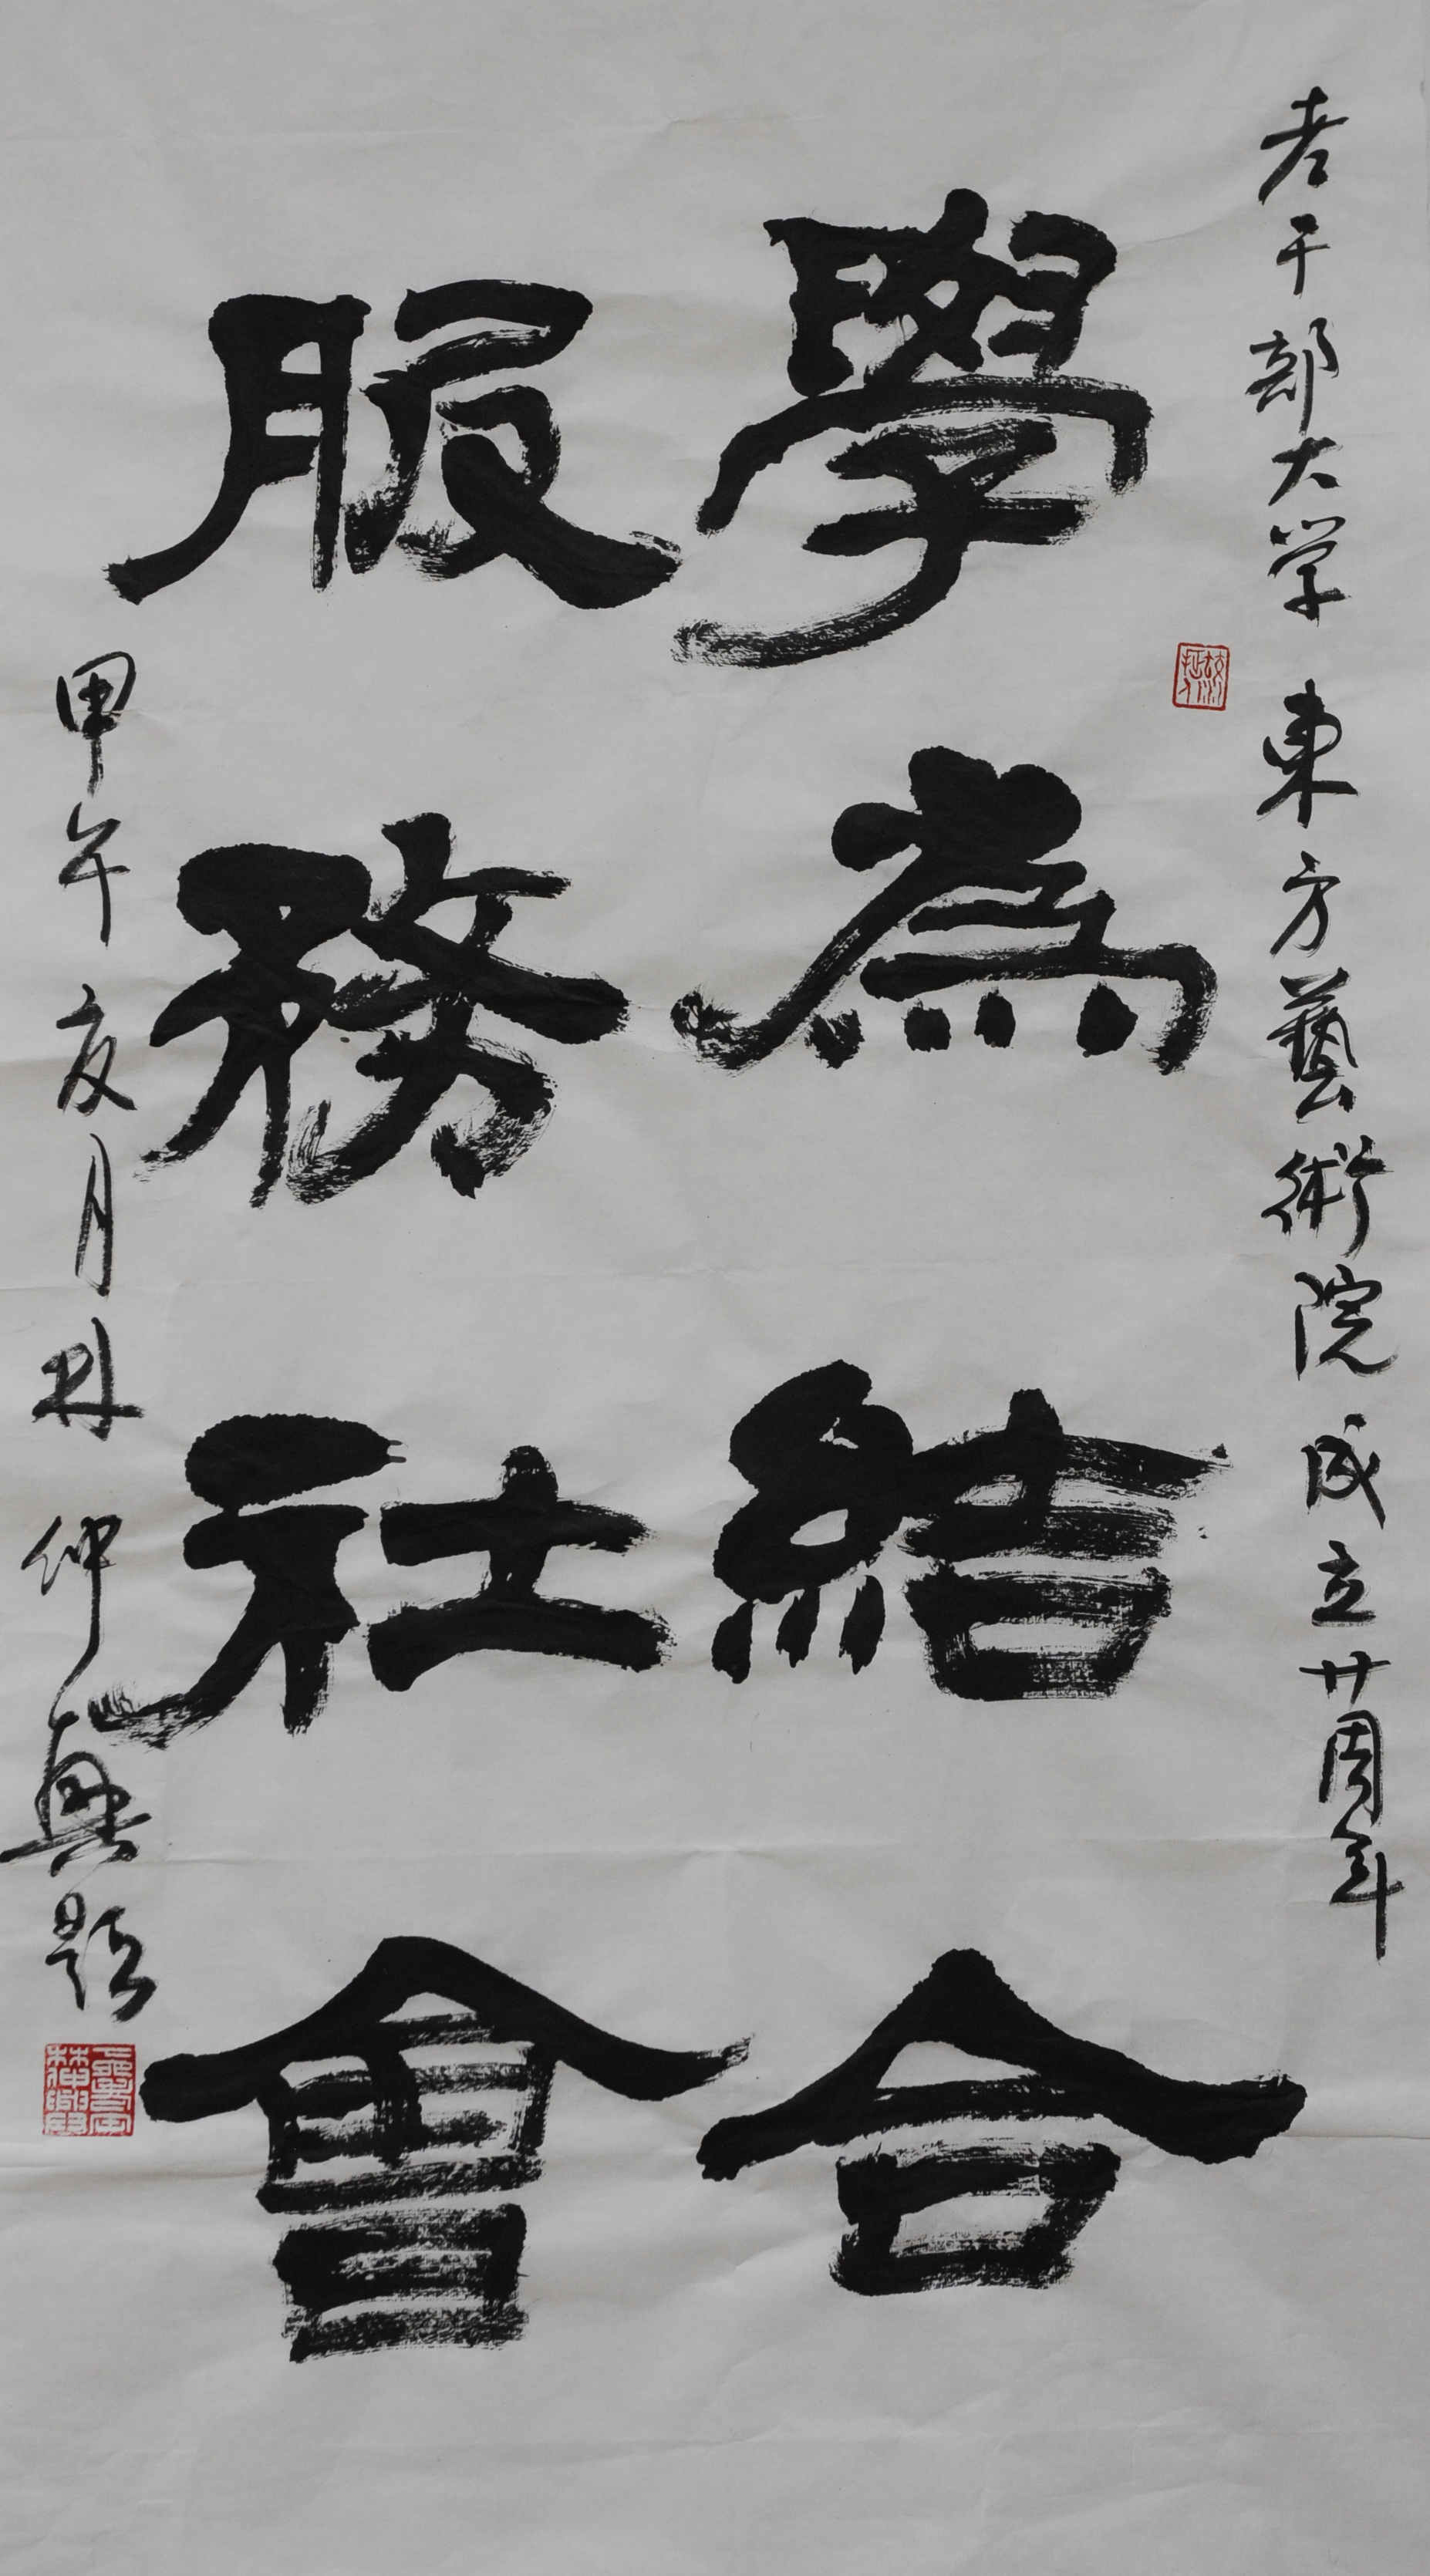 老干部大学东方藝術院成立廿周年
學為結合
服務社會
甲午亥月林仲興題